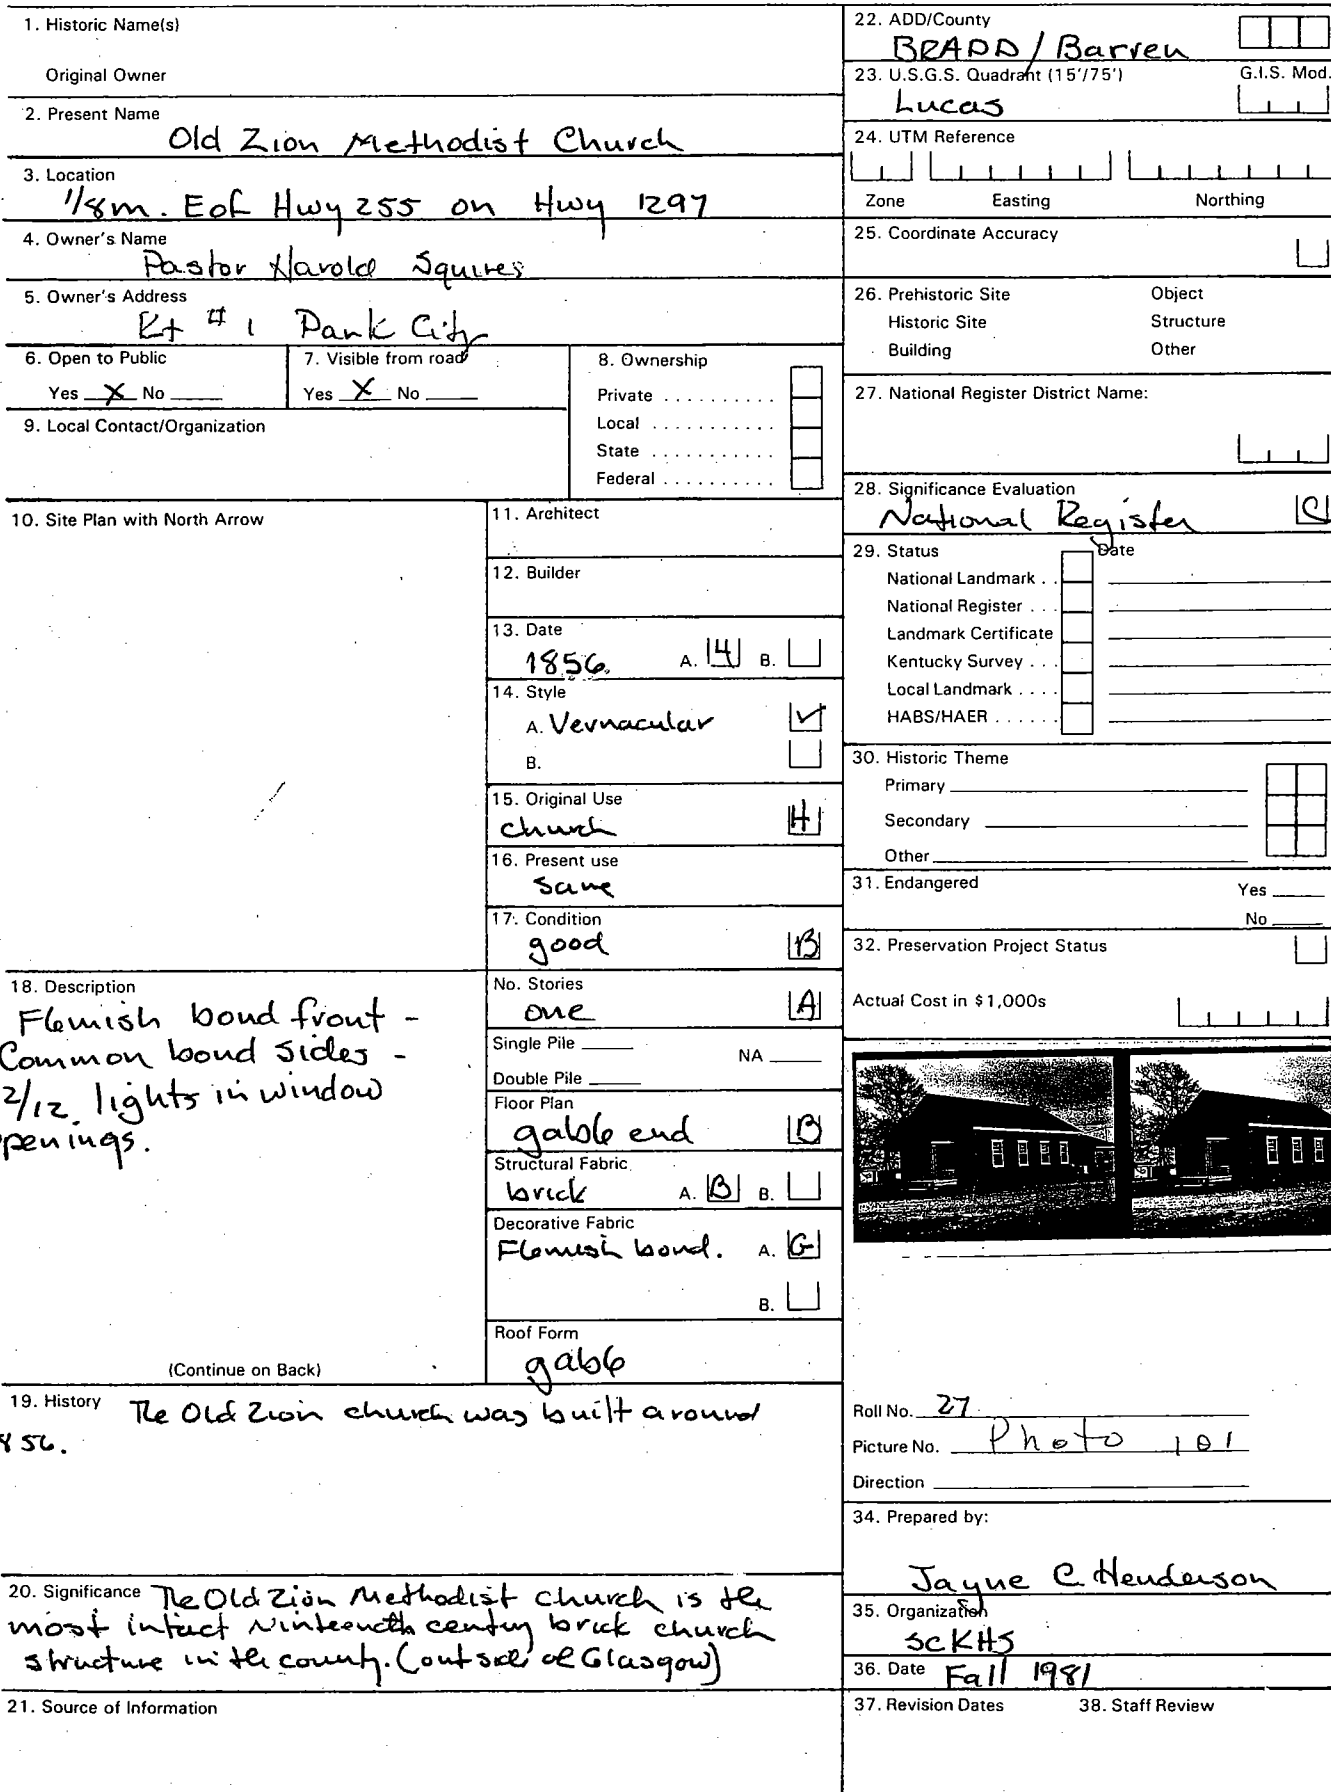 1. Historic Name(s)
Original Owner
2. Present Name
Old Zion Methodist Church
3. Location
1/8m. E of Hwy 255 on Hwy 1297
4. Owner's Name
Pastor Harold Squires
5. Owner's Address
Rt # 1 Park City
6. Open to Public
Yes X No
7. Visible from road
Yes X No
8. Ownership
Private . . . . . . . . . .
Local . . . . . . . . . . .
State . . . . . . . . . . .
Federal . . . . . . . . . .
9. Local Contact/Organization
10. Site Plan with North Arrow
11. Architect
12. Builder
13. Date
1856. A. 4 B.
14. Style
A. Vernacular ✓
B.
15. Original Use
church H
16. Present use
same
17. Condition
good B
18. Description
Flemish bond front -
Common bond sides -
2/12 lights in window
penings.
(Continue on Back)
No. Stories
one A
Single Pile
NA
Double Pile
Floor Plan
gable end B
Structural Fabric
brick A. B B.
Decorative Fabric
Flemish bond. A. G
B.
Roof Form
gable
19. History The Old Zion church was built around
856.
20. Significance The Old Zion Methodist Church is the
most intact Ninteenth century brick church
structure in the county. (outside of Glasgow)
21. Source of Information
22. ADD/County
BRADD / Barren
23. U.S.G.S. Quadrant (15'/75') G.I.S. Mod.
Lucas
24. UTM Reference
Zone Easting Northing
25. Coordinate Accuracy
26. Prehistoric Site Object
Historic Site Structure
Building Other
27. National Register District Name:
28. Significance Evaluation
National Register C
29. Status Date
National Landmark . .
National Register . . .
Landmark Certificate
Kentucky Survey . . .
Local Landmark . . . .
HABS/HAER . . . . . .
30. Historic Theme
Primary
Secondary
Other
31. Endangered Yes
No
32. Preservation Project Status
Actual Cost in $1,000s
Roll No. 27
Picture No. Photo 101
Direction
34. Prepared by:
Jayne C. Henderson
35. Organization
SCKHS
36. Date Fall 1981
37. Revision Dates 38. Staff Review